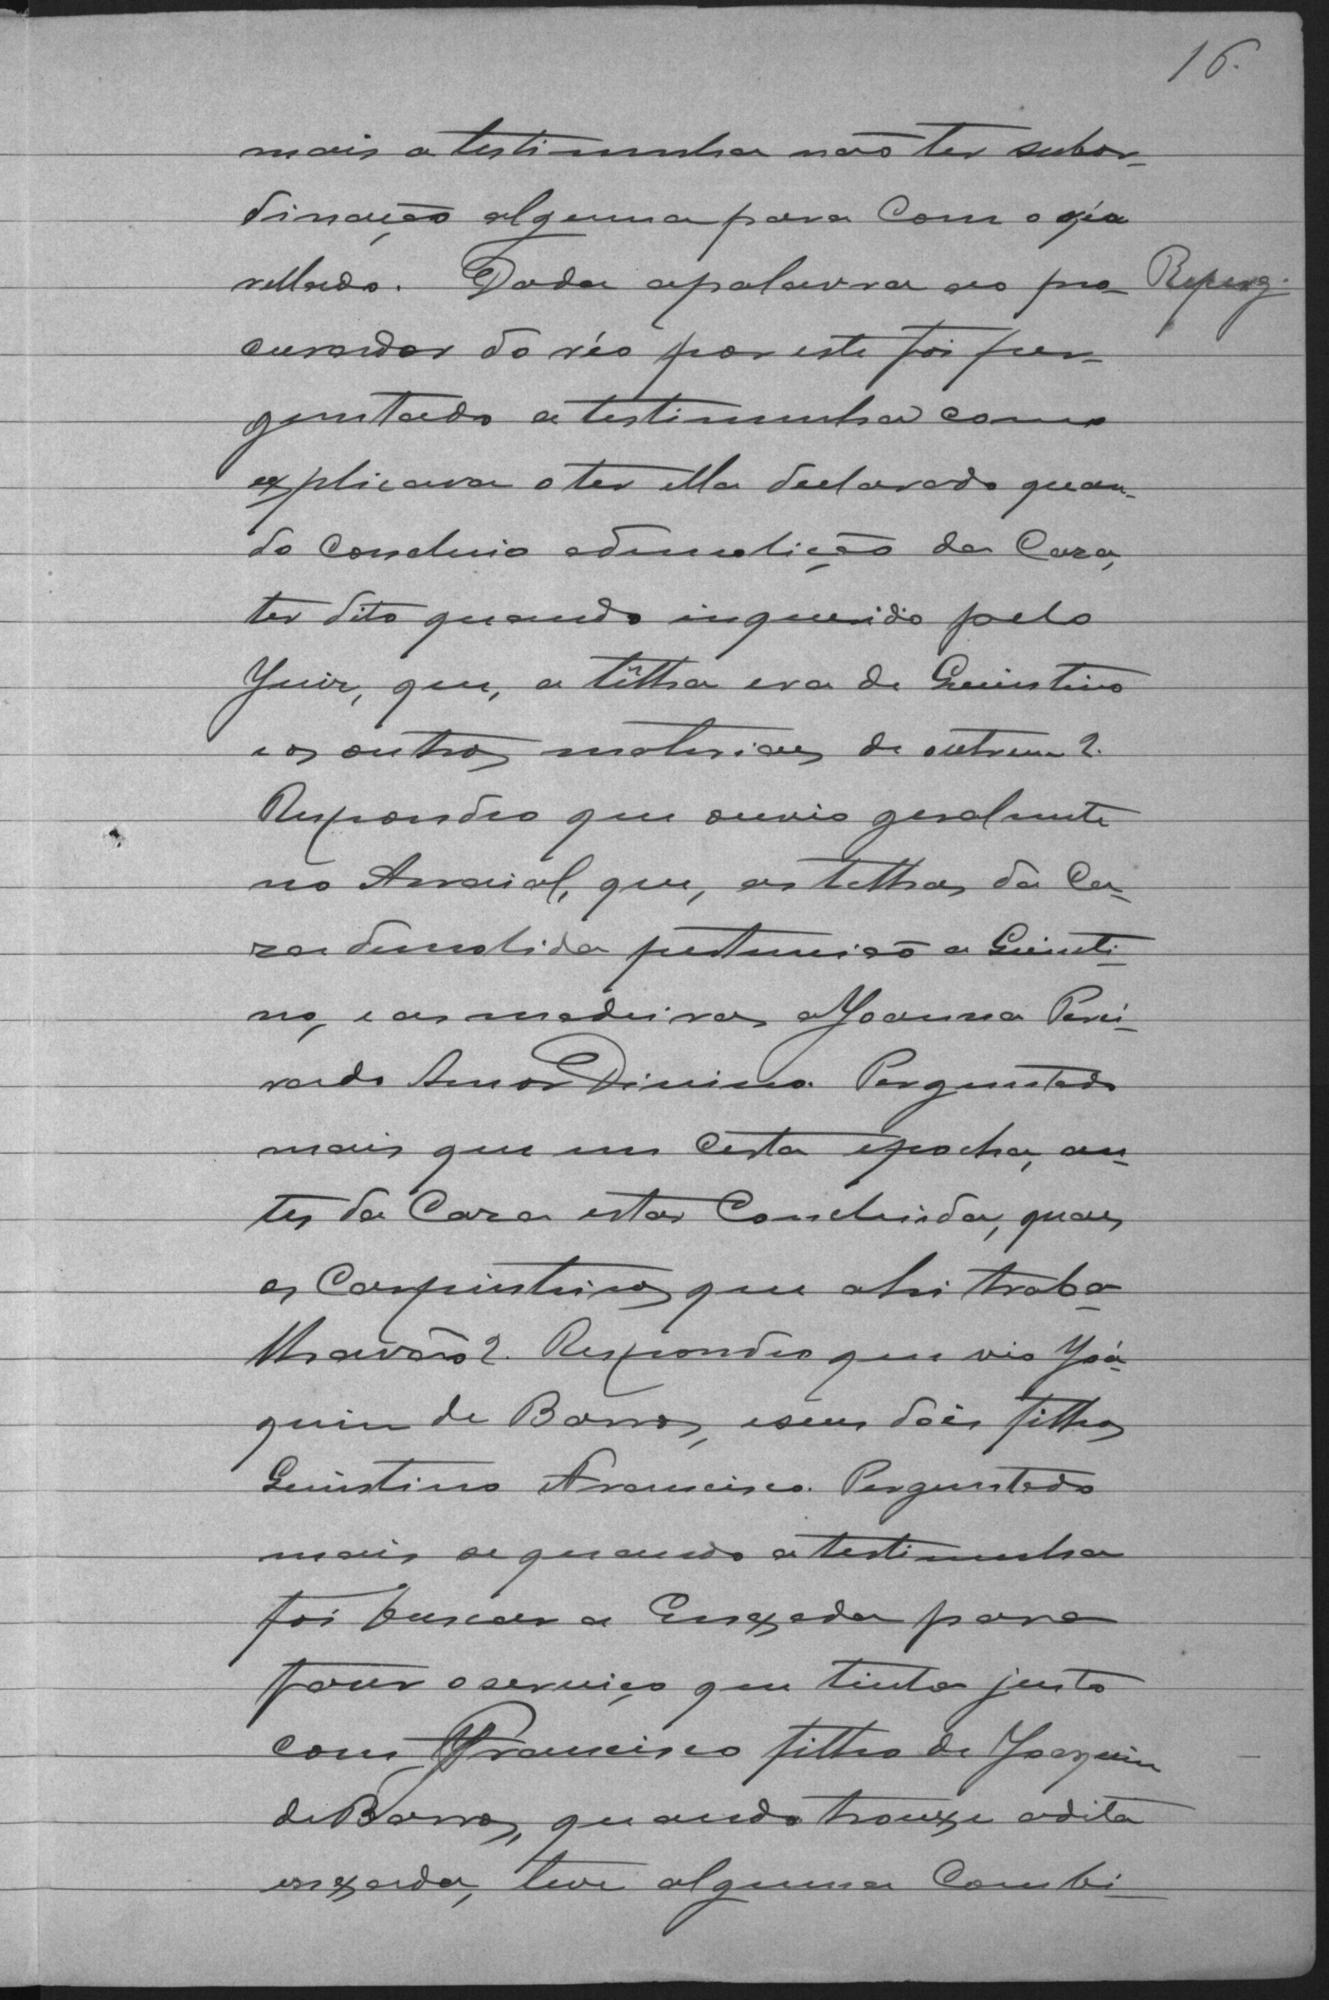 16.
mais a testimunha não ter subor-
dinação alguma para com o réo
rellado. Dada apalavra ao pro-
Reperg.
curador do réo por este foi per-
guntado a testimunha como
explicava o ter ella declarado quan-
do concluio ademolição da Caza,
ter dito quando inquerido pelo
Juiz, que, a têlha era de Guintino
e os outros materiaes de outrem?
Respondeo que ouvio geralmente
no Arraial, que, as telhas da Ca-
za demolida pertencião a Guinti-
no, e as madeiras a Joanna Perei-
ra do Amor Divino. Perguntado
mais que em certa epocha, an-
tes da Caza estar Concluida, quaes
os Carpinteiros que ahi traba-
lhavão? Respondeo que vio Joá-
quim de Barros, e seus dois filhos
Guintino e Francisco. Perguntado
mais se quando a testimunha
foi buscar a Enxada para
fazer o serviço que tinha justo
com Francisco filho de Joaquim
de Barros, quando trouxe adita
enxada, teve alguma Combi-